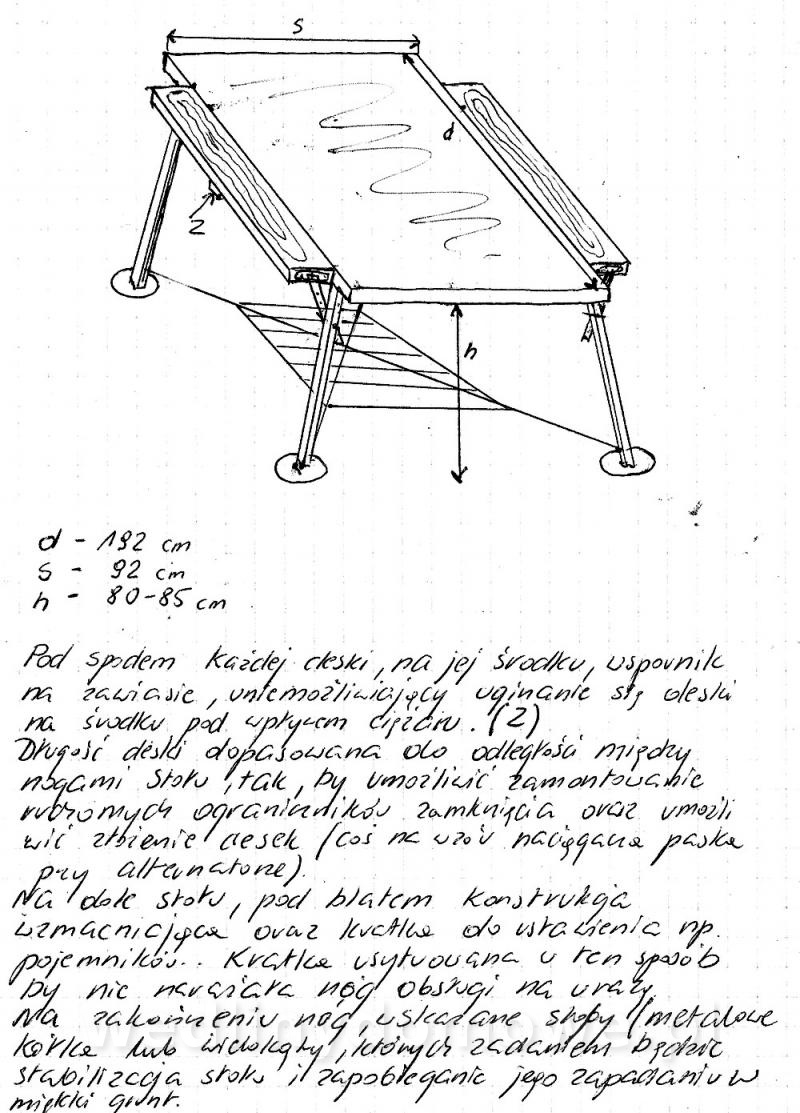 s
d
Z
h
d - 192 cm
s - 92 cm
h - 80-85 cm
Pod spodem każdej deski, na jej środku, wspornik
na zawiasie, uniemożliwiający uginanie się deski
na środku pod wpływem ciężaru. (Z)
Długość deski dopasowana do odległości między
nogami stołu, tak, by umożliwić zamontowanie
ograniczników zamknięcia oraz umożli
wić złożenie desek (coś na wzór naciągacza paska
przy alternatorze).
Na dole stołu, pod blatem konstrukcja
wzmacniająca oraz kratka do ustawienia np.
pojemników.. Kratka usytuowana w ten sposób
by nie narażała nóg obsługi na urazy.
Na zakończeniu nóg wskazane stopy (metalowe
kółka lub wielokąty, których zadaniem będzie
stabilizacja stołu i zapobieganie jego zapadaniu w
miękki grunt.